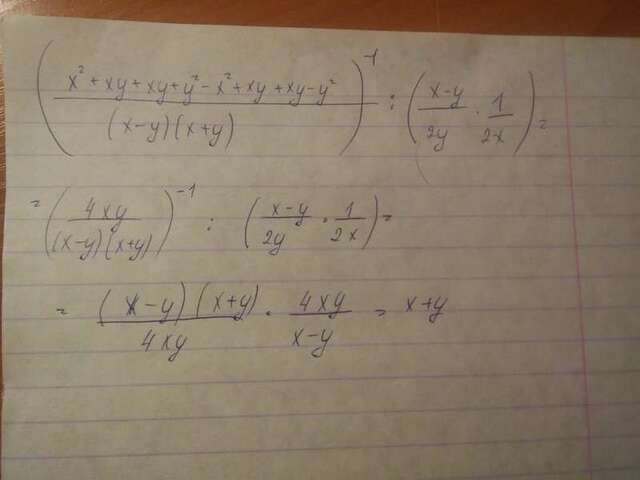 ((x² + xy + xy + y² - x² + xy + xy - y²) / ((x-y)(x+y)))⁻¹ : ((x-y)/2y · 1/2x) =
= (4xy / ((x-y)(x+y)))⁻¹ : ((x-y)/2y · 1/2x) =
= (x-y)(x+y)/4xy · 4xy/(x-y) = x+y